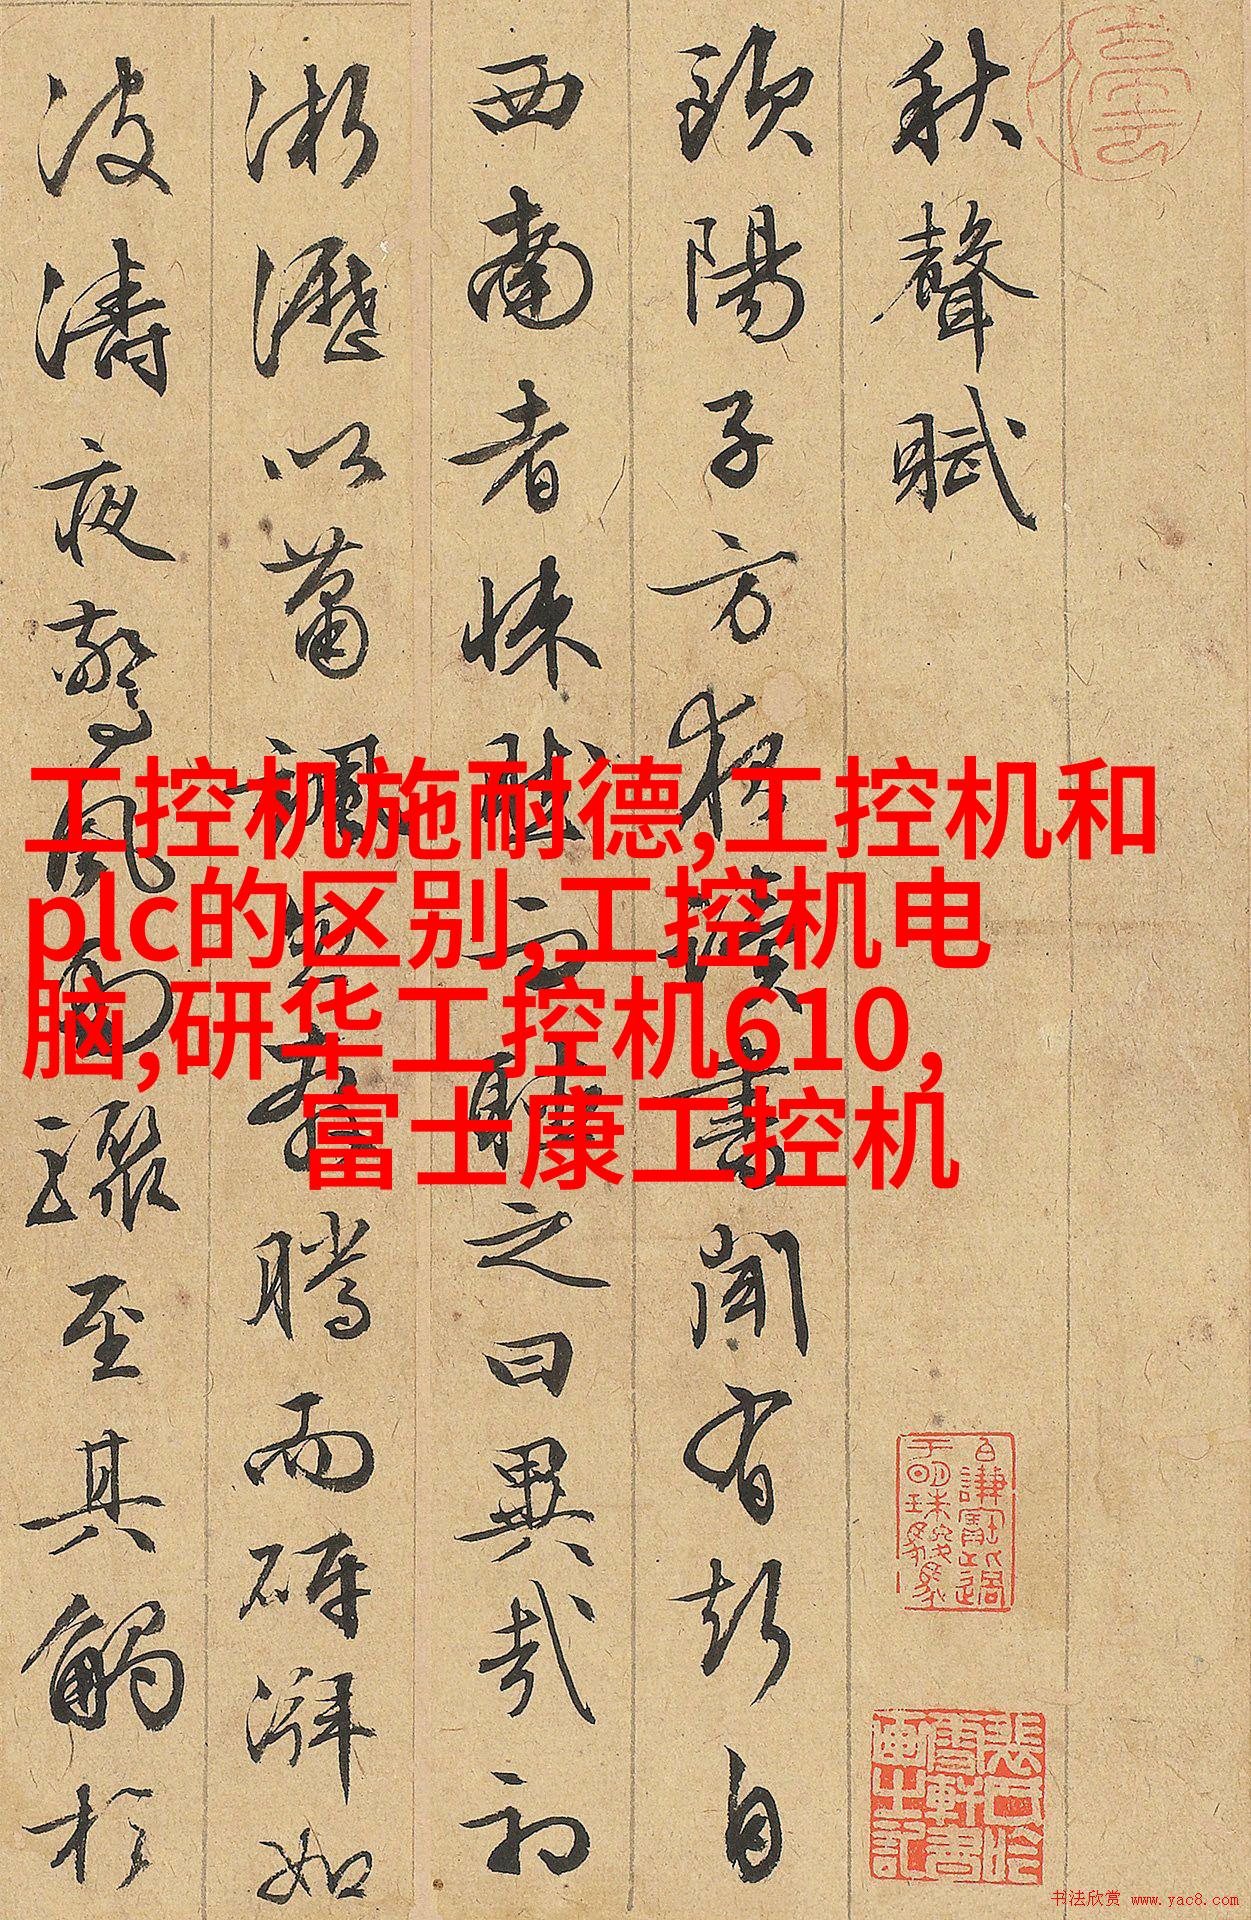 秋聲賦
歐陽子方夜讀書聞有聲自
西南者悚然而聽之曰異哉初
淅瀝以蕭颯忽奔騰而砰湃如
波濤夜驚風雨驟至其觸於
工控机施耐德,工控机和
plc的区别,工控机电
脑,研华工控机610,
富士康工控机
书法欣赏 www.yac8.com